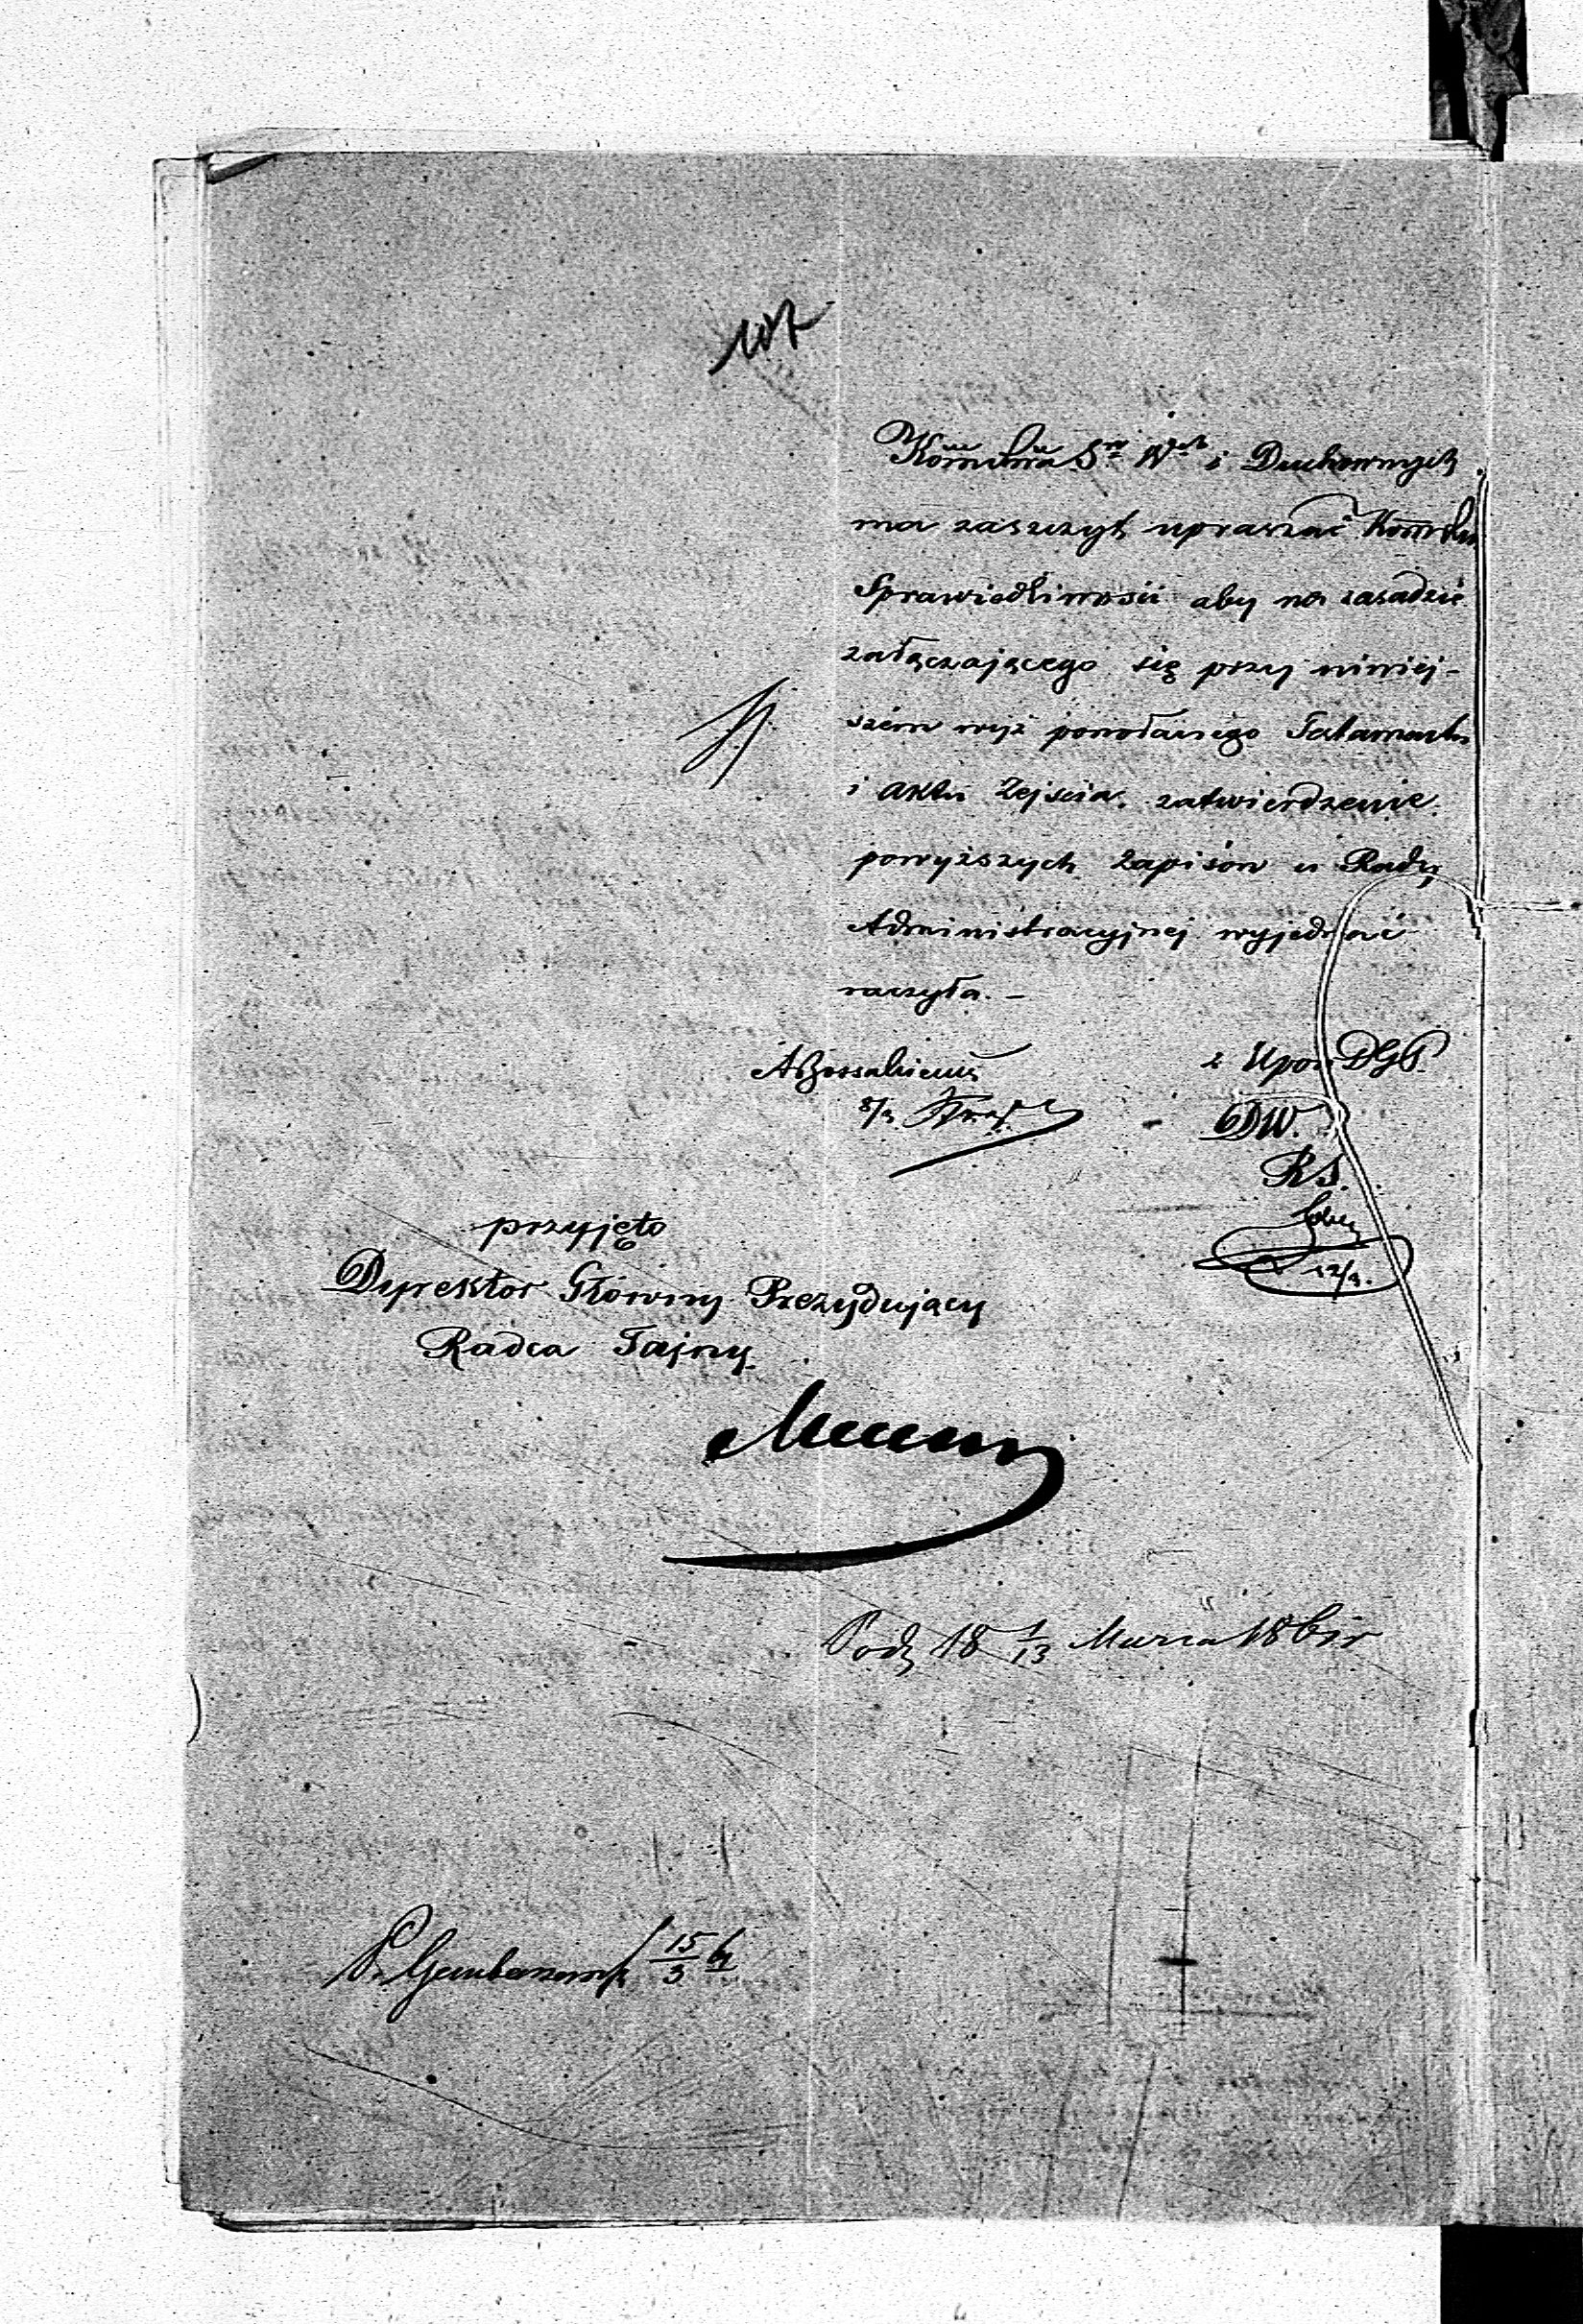 107
Kom̄ Rz̄ Sp W i Duchownych
ma zaszczyt upraszać Kom Rz
Sprawiedliwości aby na zasadzie
załączającego się przy niniej-
szém wyż powołanego Testamentu
i aktu Zejścia zatwierdzenie
powyższych Zapisów u Rady
Administracyjnej wyjednać
raczyła. —
z Upow DGP.
8/3
DW.
RS.
12/3.
przyjęto
Dyrektor Główny Prezydujący
Radca Tajny
18 1/13 Marca 1861 r
15/3 61